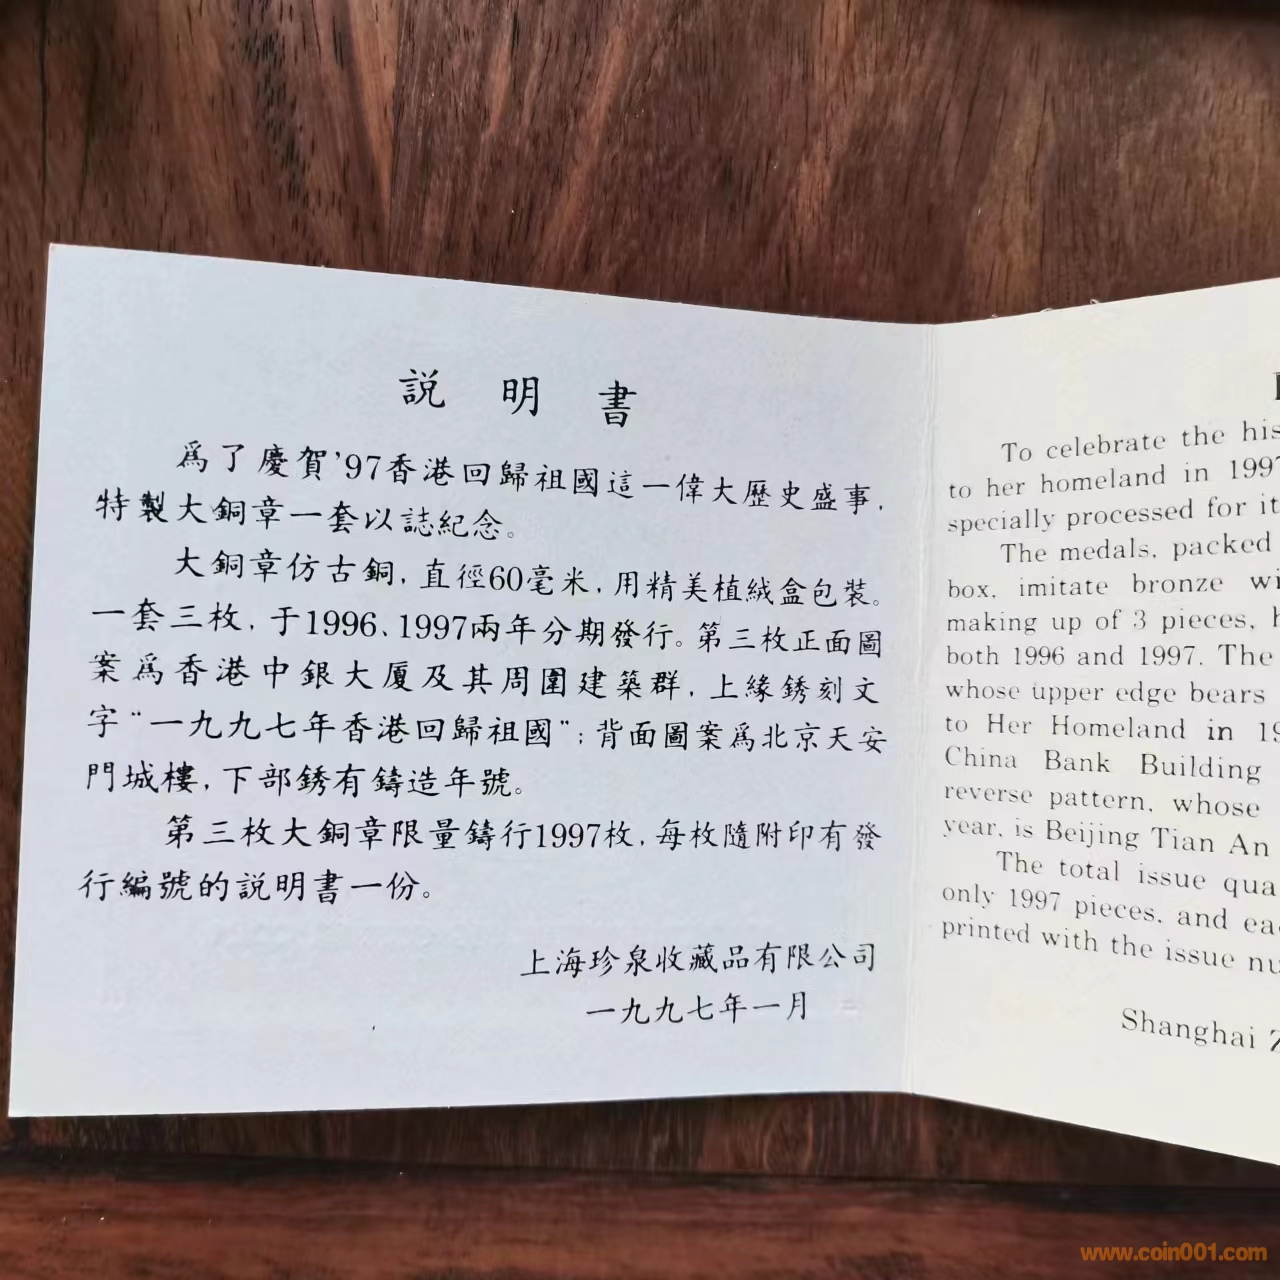 説 明 書
爲了慶賀'97香港回歸祖國這一偉大歷史盛事,
特製大銅章一套以誌紀念。
大銅章仿古銅,直徑60毫米,用精美植絨盒包裝。
一套三枚,于1996、1997兩年分期發行。第三枚正面圖
案爲香港中銀大厦及其周圍建築群,上緣銹刻文
字“一九九七年香港回歸祖國”;背面圖案爲北京天安
門城樓,下部銹有鑄造年號。
第三枚大銅章限量鑄行1997枚,每枚隨附印有發
行編號的説明書一份。
上海珍泉收藏品有限公司
一九九七年一月
To celebrate the his
to her homeland in 1997
specially processed for it
The medals, packed
box, imitate bronze wi
making up of 3 pieces, h
both 1996 and 1997. The
whose upper edge bears
to Her Homeland in 19
China Bank Building
reverse pattern, whose
year, is Beijing Tian An
The total issue qua
only 1997 pieces, and eac
printed with the issue nu
Shanghai Z
www.coin001.com